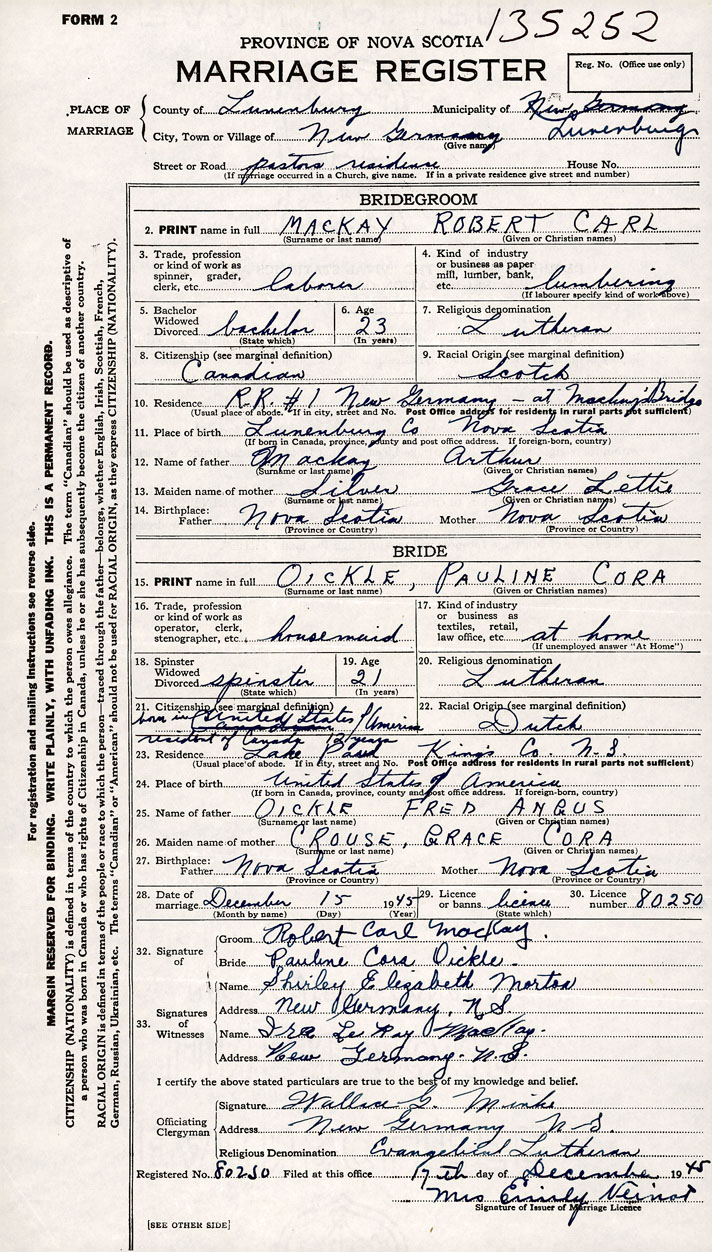 FORM 2
135252
PROVINCE OF NOVA SCOTIA
MARRIAGE REGISTER
Reg. No. (Office use only)
PLACE OF MARRIAGE
County of Lunenburg Municipality of New Germany Lunenburg
City, Town or Village of New Germany
(Give name)
Street or Road pastors residence House No.
(If marriage occurred in a Church, give name. If in a private residence give street and number)
BRIDEGROOM
2. PRINT name in full MACKAY ROBERT CARL
(Surname or last name) (Given or Christian names)
3. Trade, profession or kind of work as spinner, grader, clerk, etc. laborer
4. Kind of industry or business as paper mill, lumber, bank, etc. lumbering
(If labourer specify kind of work above)
5. Bachelor Widowed Divorced bachelor
(State which)
6. Age 23
(In years)
7. Religious denomination Lutheran
8. Citizenship (see marginal definition) Canadian
9. Racial Origin (see marginal definition) Scotch
10. Residence R.R. #1 New Germany - at Mackay's Bridge
(Usual place of abode. If in city, street and No. Post Office address for residents in rural parts not sufficient)
11. Place of birth Lunenburg Co Nova Scotia
(If born in Canada, province, county and post office address. If foreign-born, country)
12. Name of father Mackay Arthur
(Surname or last name) (Given or Christian names)
13. Maiden name of mother Silver Grace Lettie
(Surname or last name) (Given or Christian names)
14. Birthplace: Father Nova Scotia Mother Nova Scotia
(Province or Country) (Province or Country)
BRIDE
15. PRINT name in full OICKLE, PAULINE CORA
(Surname or last name) (Given or Christian names)
16. Trade, profession or kind of work as operator, clerk, stenographer, etc. housemaid
17. Kind of industry or business as textiles, retail, law office, etc. at home
(If unemployed answer "At Home")
18. Spinster Widowed Divorced spinster
(State which)
19. Age 21
(In years)
20. Religious denomination Lutheran
21. Citizenship (see marginal definition)
born in United States of America
resident of Canada years
22. Racial Origin (see marginal definition) Dutch
23. Residence Lake Paul King's Co. N.S.
(Usual place of abode. If in city, street and No. Post Office address for residents in rural parts not sufficient)
24. Place of birth United States of America
(If born in Canada, province, county and post office address. If foreign-born, country)
25. Name of father OICKLE FRED ANGUS
(Surname or last name) (Given or Christian names)
26. Maiden name of mother CROUSE, GRACE CORA
(Surname or last name) (Given or Christian names)
27. Birthplace: Father Nova Scotia Mother Nova Scotia
(Province or Country) (Province or Country)
28. Date of marriage December 15 1945
(Month by name) (Day) (Year)
29. Licence or banns licence
(State which)
30. Licence number 80250
32. Signature of
Groom Robert Carl MacKay.
Bride Pauline Cora Oickle.
33. Signatures of Witnesses
Name Shirley Elizabeth Morton
Address New Germany, N.S.
Name Ira Le Roy MacKay.
Address New Germany. N.S.
I certify the above stated particulars are true to the best of my knowledge and belief.
Officiating Clergyman
Signature Wallace G. Minke
Address New Germany N S.
Religious Denomination Evangelical Lutheran
Registered No. 80250 Filed at this office 17th day of December 1945
Mrs Emily Veinot
Signature of Issuer of Marriage Licence
[SEE OTHER SIDE]
For registration and mailing instructions see reverse side.
MARGIN RESERVED FOR BINDING. WRITE PLAINLY, WITH UNFADING INK. THIS IS A PERMANENT RECORD.
CITIZENSHIP (NATIONALITY) is defined in terms of the country to which the person owes allegiance. The term "Canadian" should be used as descriptive of
a person who was born in Canada or who has rights of Citizenship in Canada, unless he or she has subsequently become the citizen of another country.
RACIAL ORIGIN is defined in terms of the people or race to which the person—traced through the father—belongs, whether English, Irish, Scottish, French,
German, Russian, Ukrainian, etc. The terms "Canadian" or "American" should not be used for RACIAL ORIGIN, as they express CITIZENSHIP (NATIONALITY).